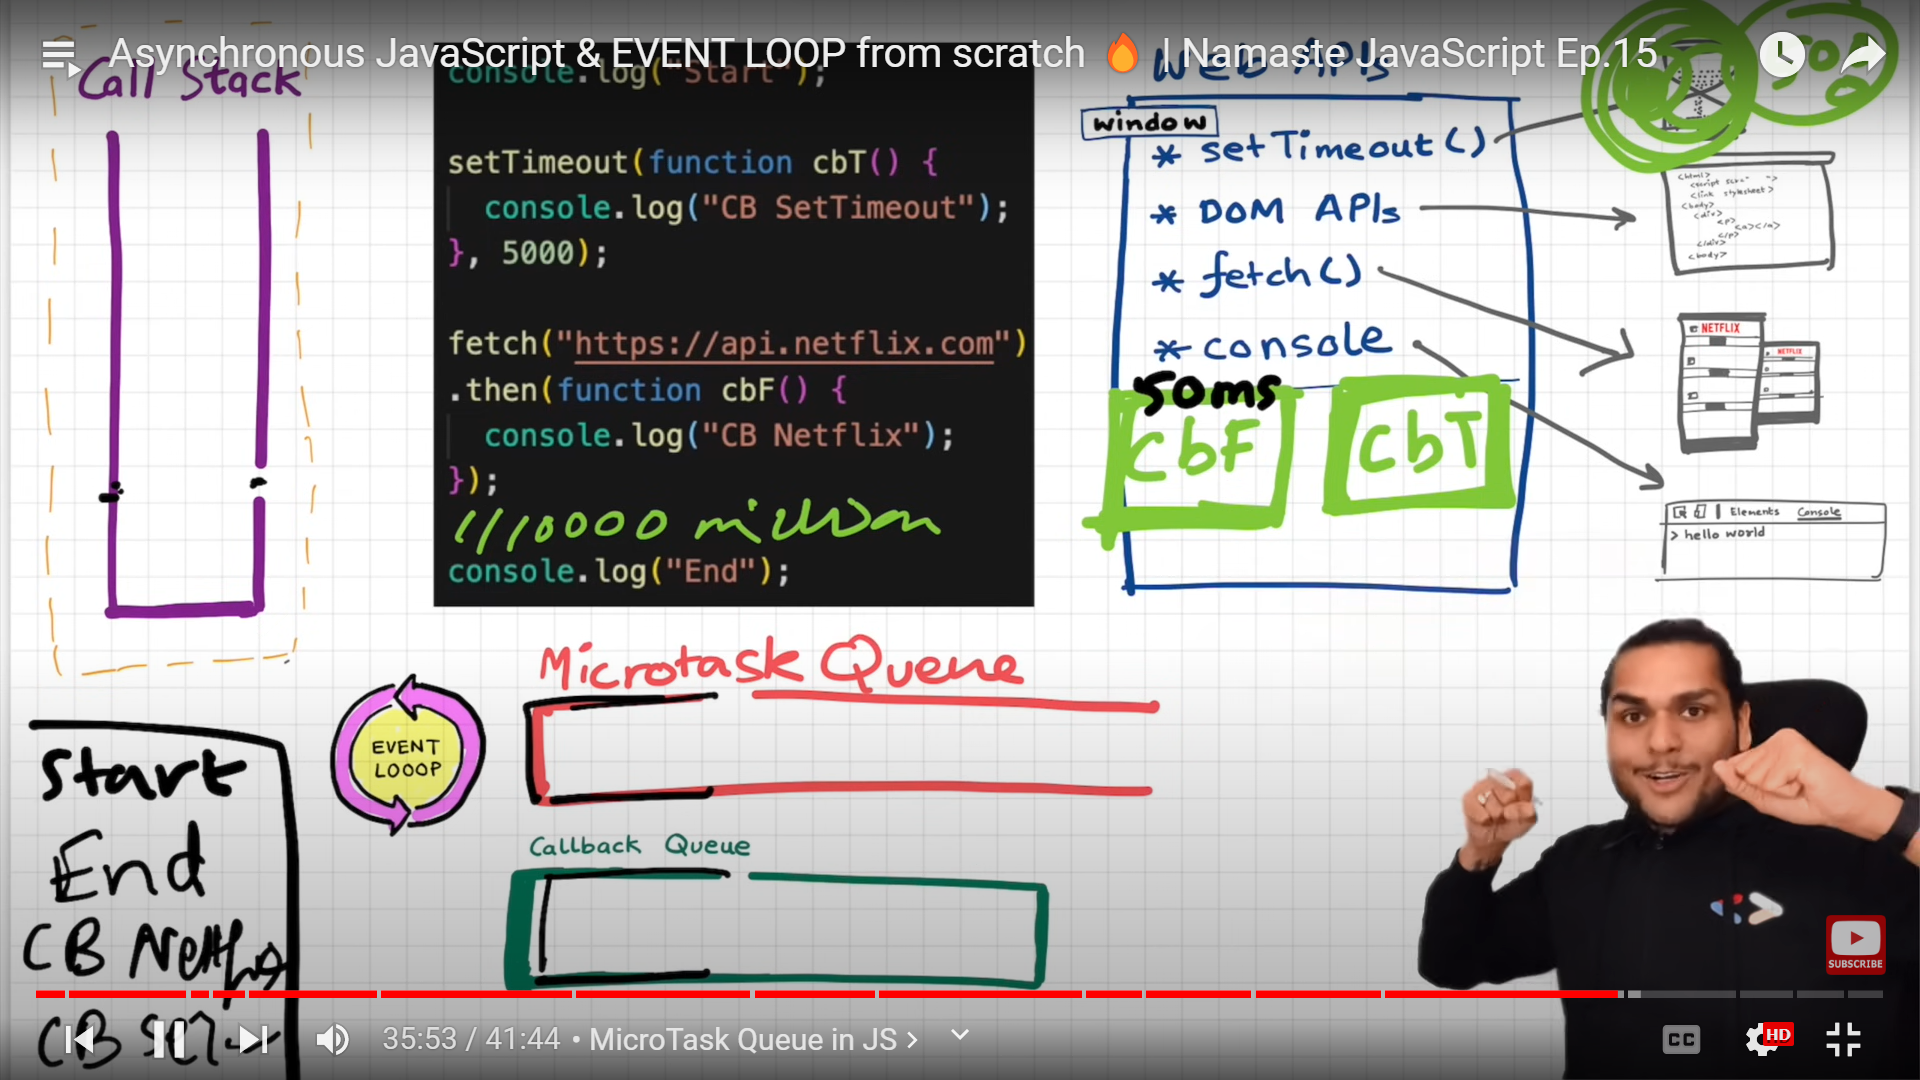 Asynchronous JavaScript & EVENT LOOP from scratch 🔥 | Namaste JavaScript Ep.15
Call Stack
console.log("Start");
setTimeout(function cbT() {
console.log("CB SetTimeout");
}, 5000);
fetch("https://api.netflix.com")
.then(function cbF() {
console.log("CB Netflix");
});
// 10000 million
console.log("End");
Web APIs
window
* setTimeout()
* DOM APIs
* fetch()
* console
50ms
CbF
CbT
<html>
<body>
<div>
<p>
<a></a>
</p>
</div>
<body>
NETFLIX
NETFLIX
Elements Console
> hello world
Microtask Queue
EVENT
LOOOP
Callback Queue
Start
End
CB Netflix
CB
SUBSCRIBE
35:53 / 41:44 • MicroTask Queue in JS >
CC
HD